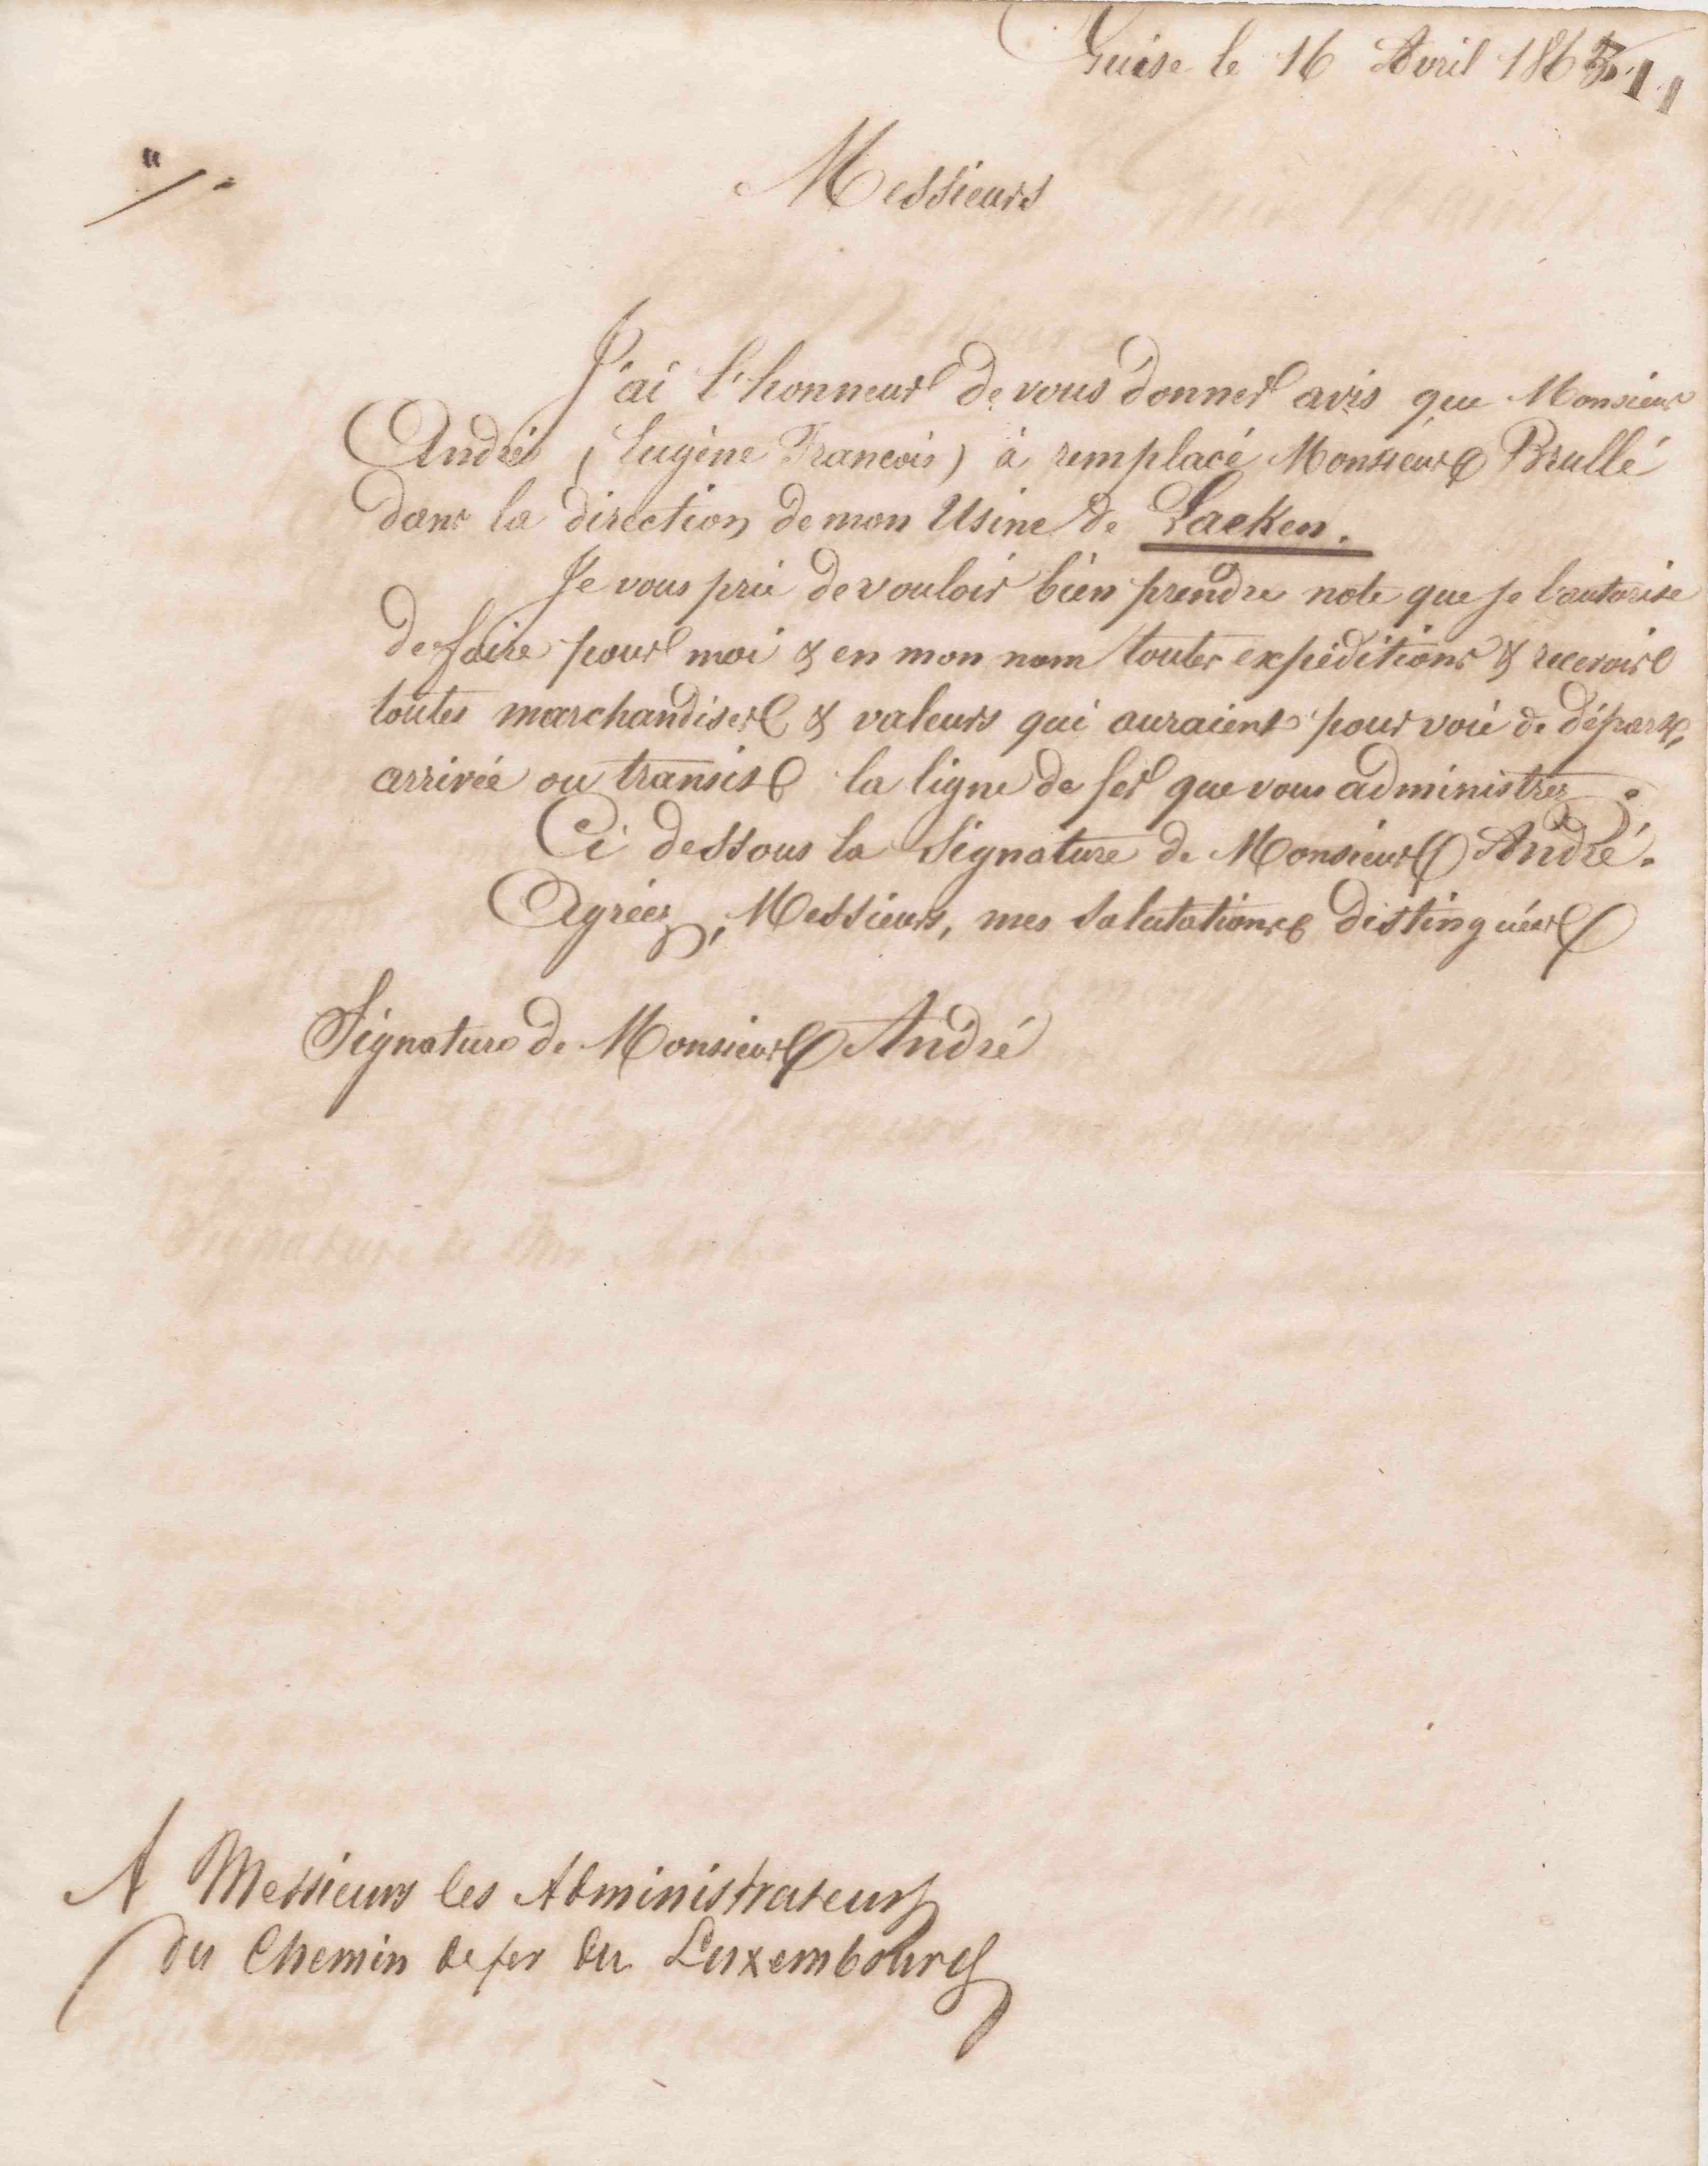 Guise le 16 Avril 1865
11
Messieurs
J'ai l'honneur de vous donner avis que Monsieur
André (Eugène Francois) à remplacé Monsieur Brullé
dans la direction de mon Usine de Laeken.
Je vous prie de vouloir bien prendre note que je l'autorise
de faire pour moi & en mon nom toutes expéditions & recevoir
toutes marchandises & valeurs qui auraient pour voie de départ,
arrivée ou transit la ligne de fer que vous administrez.
Ci dessous la Signature de Monsieur André.
Agréez, Messieurs, mes Salutations distinguées
Signature de Monsieur André
A Messieurs les Administrateurs
du Chemin de fer du Luxembourg